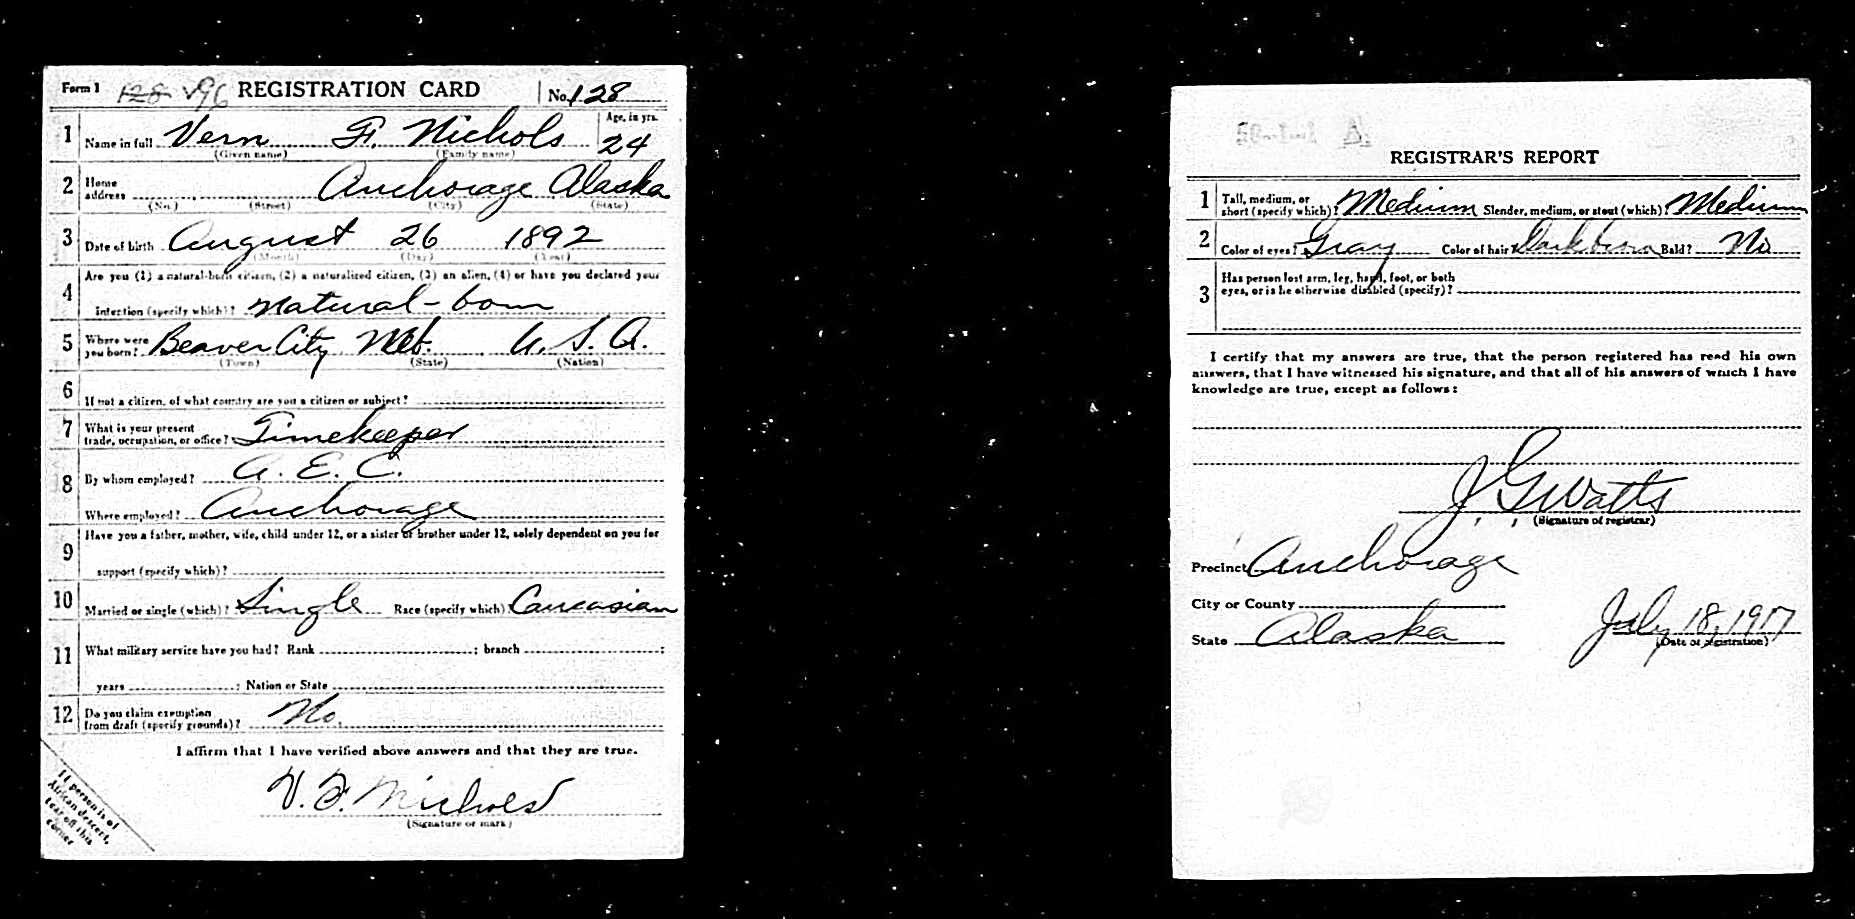 Form 1 128 V96 REGISTRATION CARD No. 128
1 Name in full Vern F. Nichols Age, in yrs. 24
(Given name) (Family name)
2 Home address Anchorage Alaska
(No.) (Street) (City) (State)
3 Date of birth August 26 1892
(Month) (Day) (Year)
4 Are you (1) a natural-born citizen, (2) a naturalized citizen, (3) an alien, (4) or have you declared your
intention (specify which)? Natural-born
5 Where were you born? Beaver City Neb. U. S. A.
(Town) (State) (Nation)
6 If not a citizen, of what country are you a citizen or subject?
7 What is your present trade, occupation, or office? Timekeeper
8 By whom employed? A. E. C.
Where employed? Anchorage
9 Have you a father, mother, wife, child under 12, or a sister or brother under 12, solely dependent on you for
support (specify which)?
10 Married or single (which)? Single Race (specify which) Caucasian
11 What military service have you had? Rank ; branch ;
years ; Nation or State
12 Do you claim exemption from draft (specify grounds)? No.
I affirm that I have verified above answers and that they are true.
V. F. Nichols
(Signature or mark)
If person is of
African descent,
tear off this
corner
REGISTRAR'S REPORT
1 Tall, medium, or short (specify which)? Medium Slender, medium, or stout (which)? Medium
2 Color of eyes? Gray Color of hair? Dark brown Bald? No
3 Has person lost arm, leg, hand, foot, or both
eyes, or is he otherwise disabled (specify)?
I certify that my answers are true, that the person registered has read his own
answers, that I have witnessed his signature, and that all of his answers of which I have
knowledge are true, except as follows:
J G Watts
(Signature of registrar)
Precinct Anchorage
City or County
State Alaska July 18, 1917
(Date of registration)